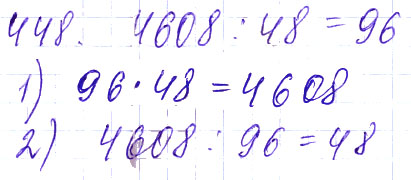 448. 4608 : 48 = 96
1) 96 · 48 = 4608
2) 4608 : 96 = 48